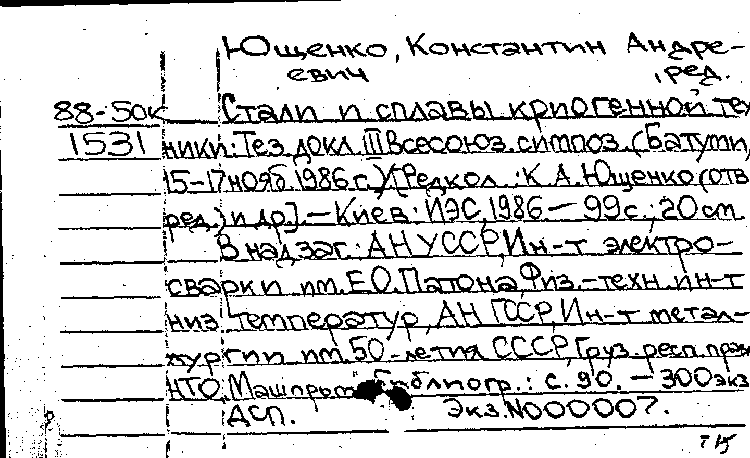 Ющенко, Константин Андре-
евич , ред.
88-50к Стали и сплавы криогенной тех
1531 ники: Тез. докл. III Всесоюз. симпоз. (Батуми,
15-17 нояб. 1986 г.) / [Редкол.: К. А. Ющенко (отв.
ред.) и др.]. – Киев: ИЭС, 1986 – 99 с.; 20 см.
В надзаг.: АН УССР, Ин-т электро-
сварки им. Е. О. Патона, Физ.-техн. ин-т
низ. температур, АН ГССР, Ин-т метал-
лургии им. 50-летия СССР, Груз. респ. прав
НТО "Машпром". Библиогр.: с. 90. – 300 экз
ДСП. Экз. N 000007.